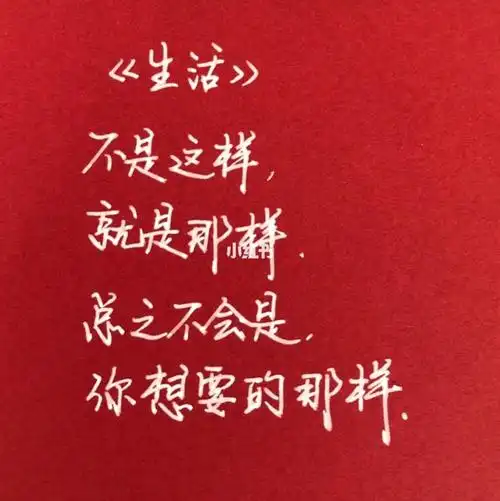 《生活》
不是这样，
就是那样.
小红书
总之不会是，
你想要的那样.